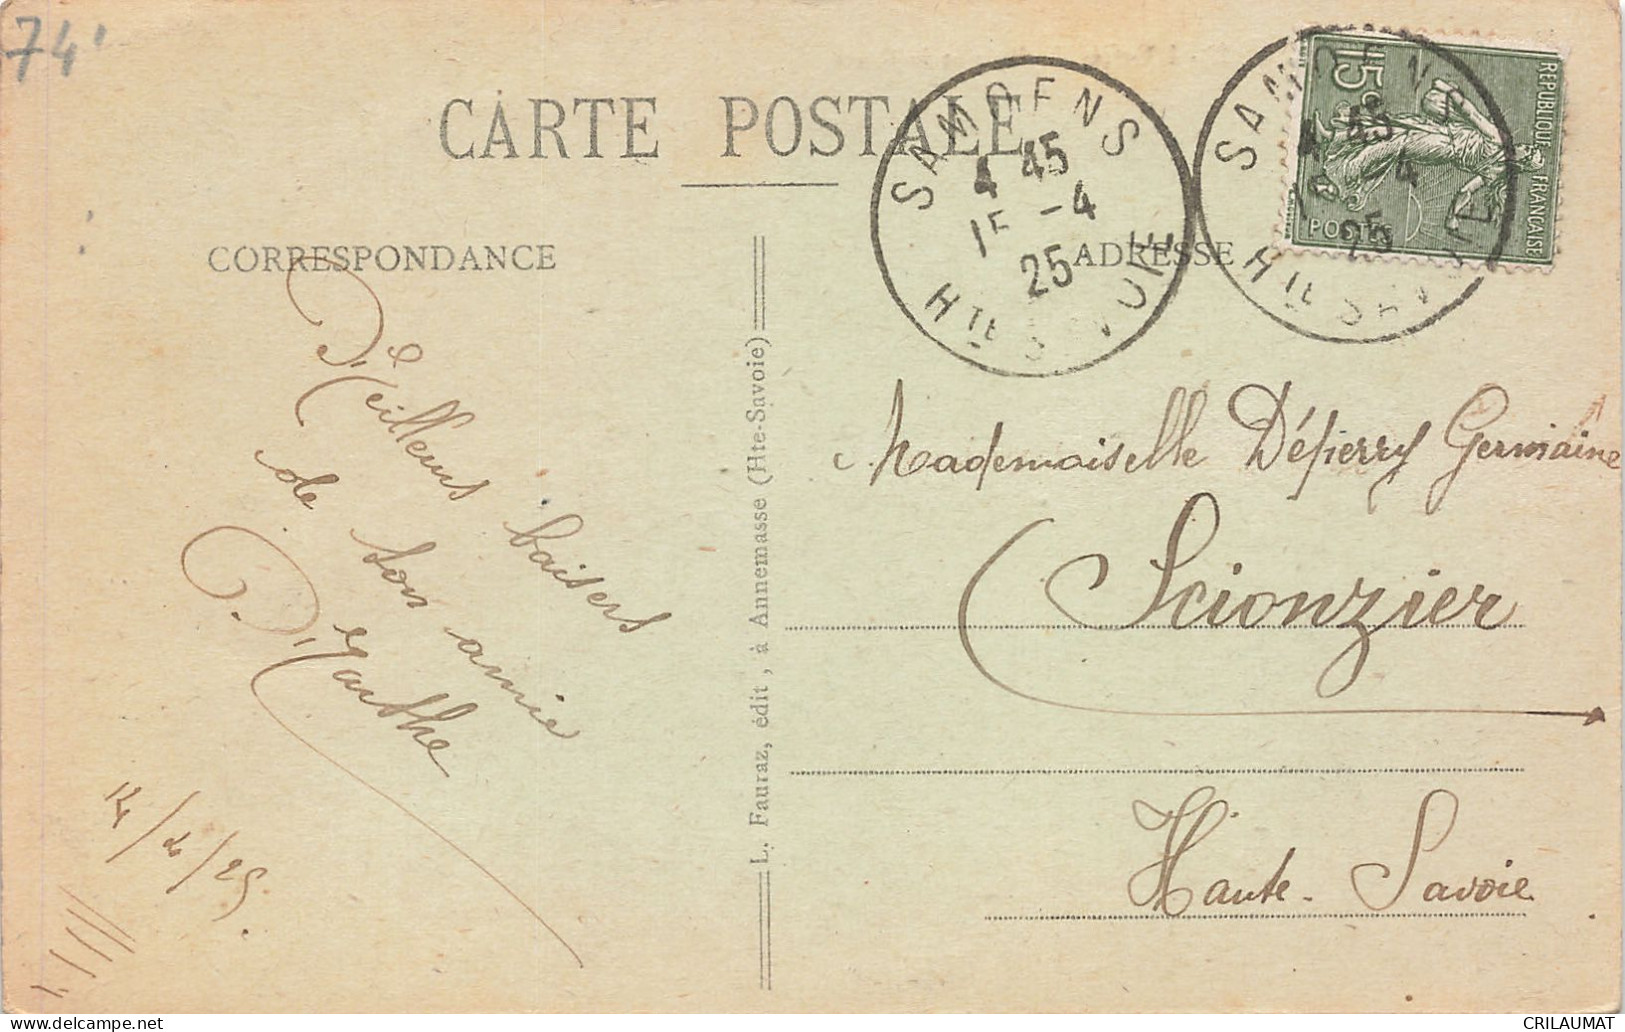 74'
CARTE POSTALE
SAMOENS
4 45
15 -4
25
Hte SAVOIE
SAMOENS
4
25
Hte SAVOIE
15c
REPUBLIQUE FRANÇAISE
POSTES
CORRESPONDANCE
ADRESSE
Meilleurs baisers
de ton amie
Marthe
14/4/25.
L. Fauraz, édit, à Annemasse (Hte-Savoie)
Mademoiselle Dépierry Germaine
Scionzier
Haute-Savoie
CRILAUMAT